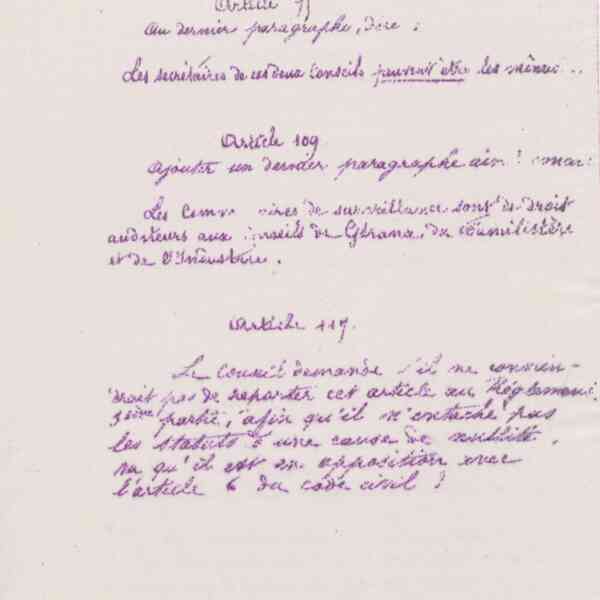 Article
Au dernier paragraphe, dire :
Les secrétaires de ces deux Conseils peuvent être les mêmes ..
Article 109
Ajouter un dernier paragraphe
Les de surveillance sont de droit
auditeurs aux de Gérance, du Familistère
et de l'Industrie.
Article 117.
Le Conseil demande s'il ne convien-
drait pas de reporter cet article au Règlement,
3ème partie, afin qu'il n'entache pas
les statuts d'une cause de nullité,
vu qu'il est en opposition avec
l'article 6 du code civil ?